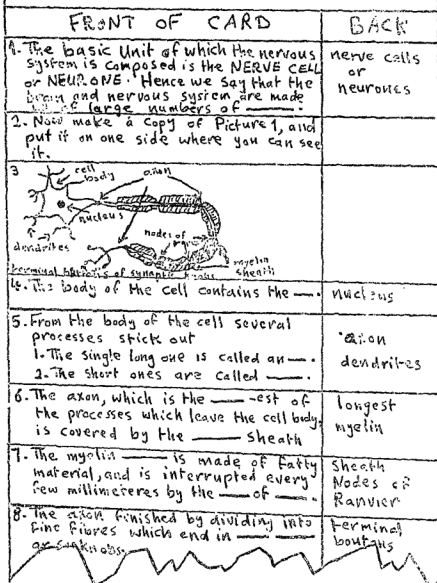 FRONT OF CARD
BACK
1. The basic Unit of which the nervous
system is composed is the NERVE CELL
or NEURONE. Hence we say that the
brain and nervous system are made
up of large numbers of ——.
nerve cells
or
neurones
2. Now make a copy of Picture 1, and
put it on one side where you can see
it.
3
cell
body
axon
nucleus
nodes of
dendrites
myelin
sheath
terminal of synaptic knobs
4. The body of the cell contains the —.
nucleus
5. From the body of the cell several
processes stick out
1. The single long one is called an —.
2. The short ones are called ——.
axon
dendrites
6. The axon, which is the —— -est of
the processes which leave the cell body,
is covered by the —— sheath
longest
myelin
7. The myelin —— is made of fatty
material, and is interrupted every
few millimeteres by the — of ——.
Sheath
Nodes of
Ranvier
8. The axon finished by dividing into
fine fibres which end in —— ——
or knobs.
terminal
boutons